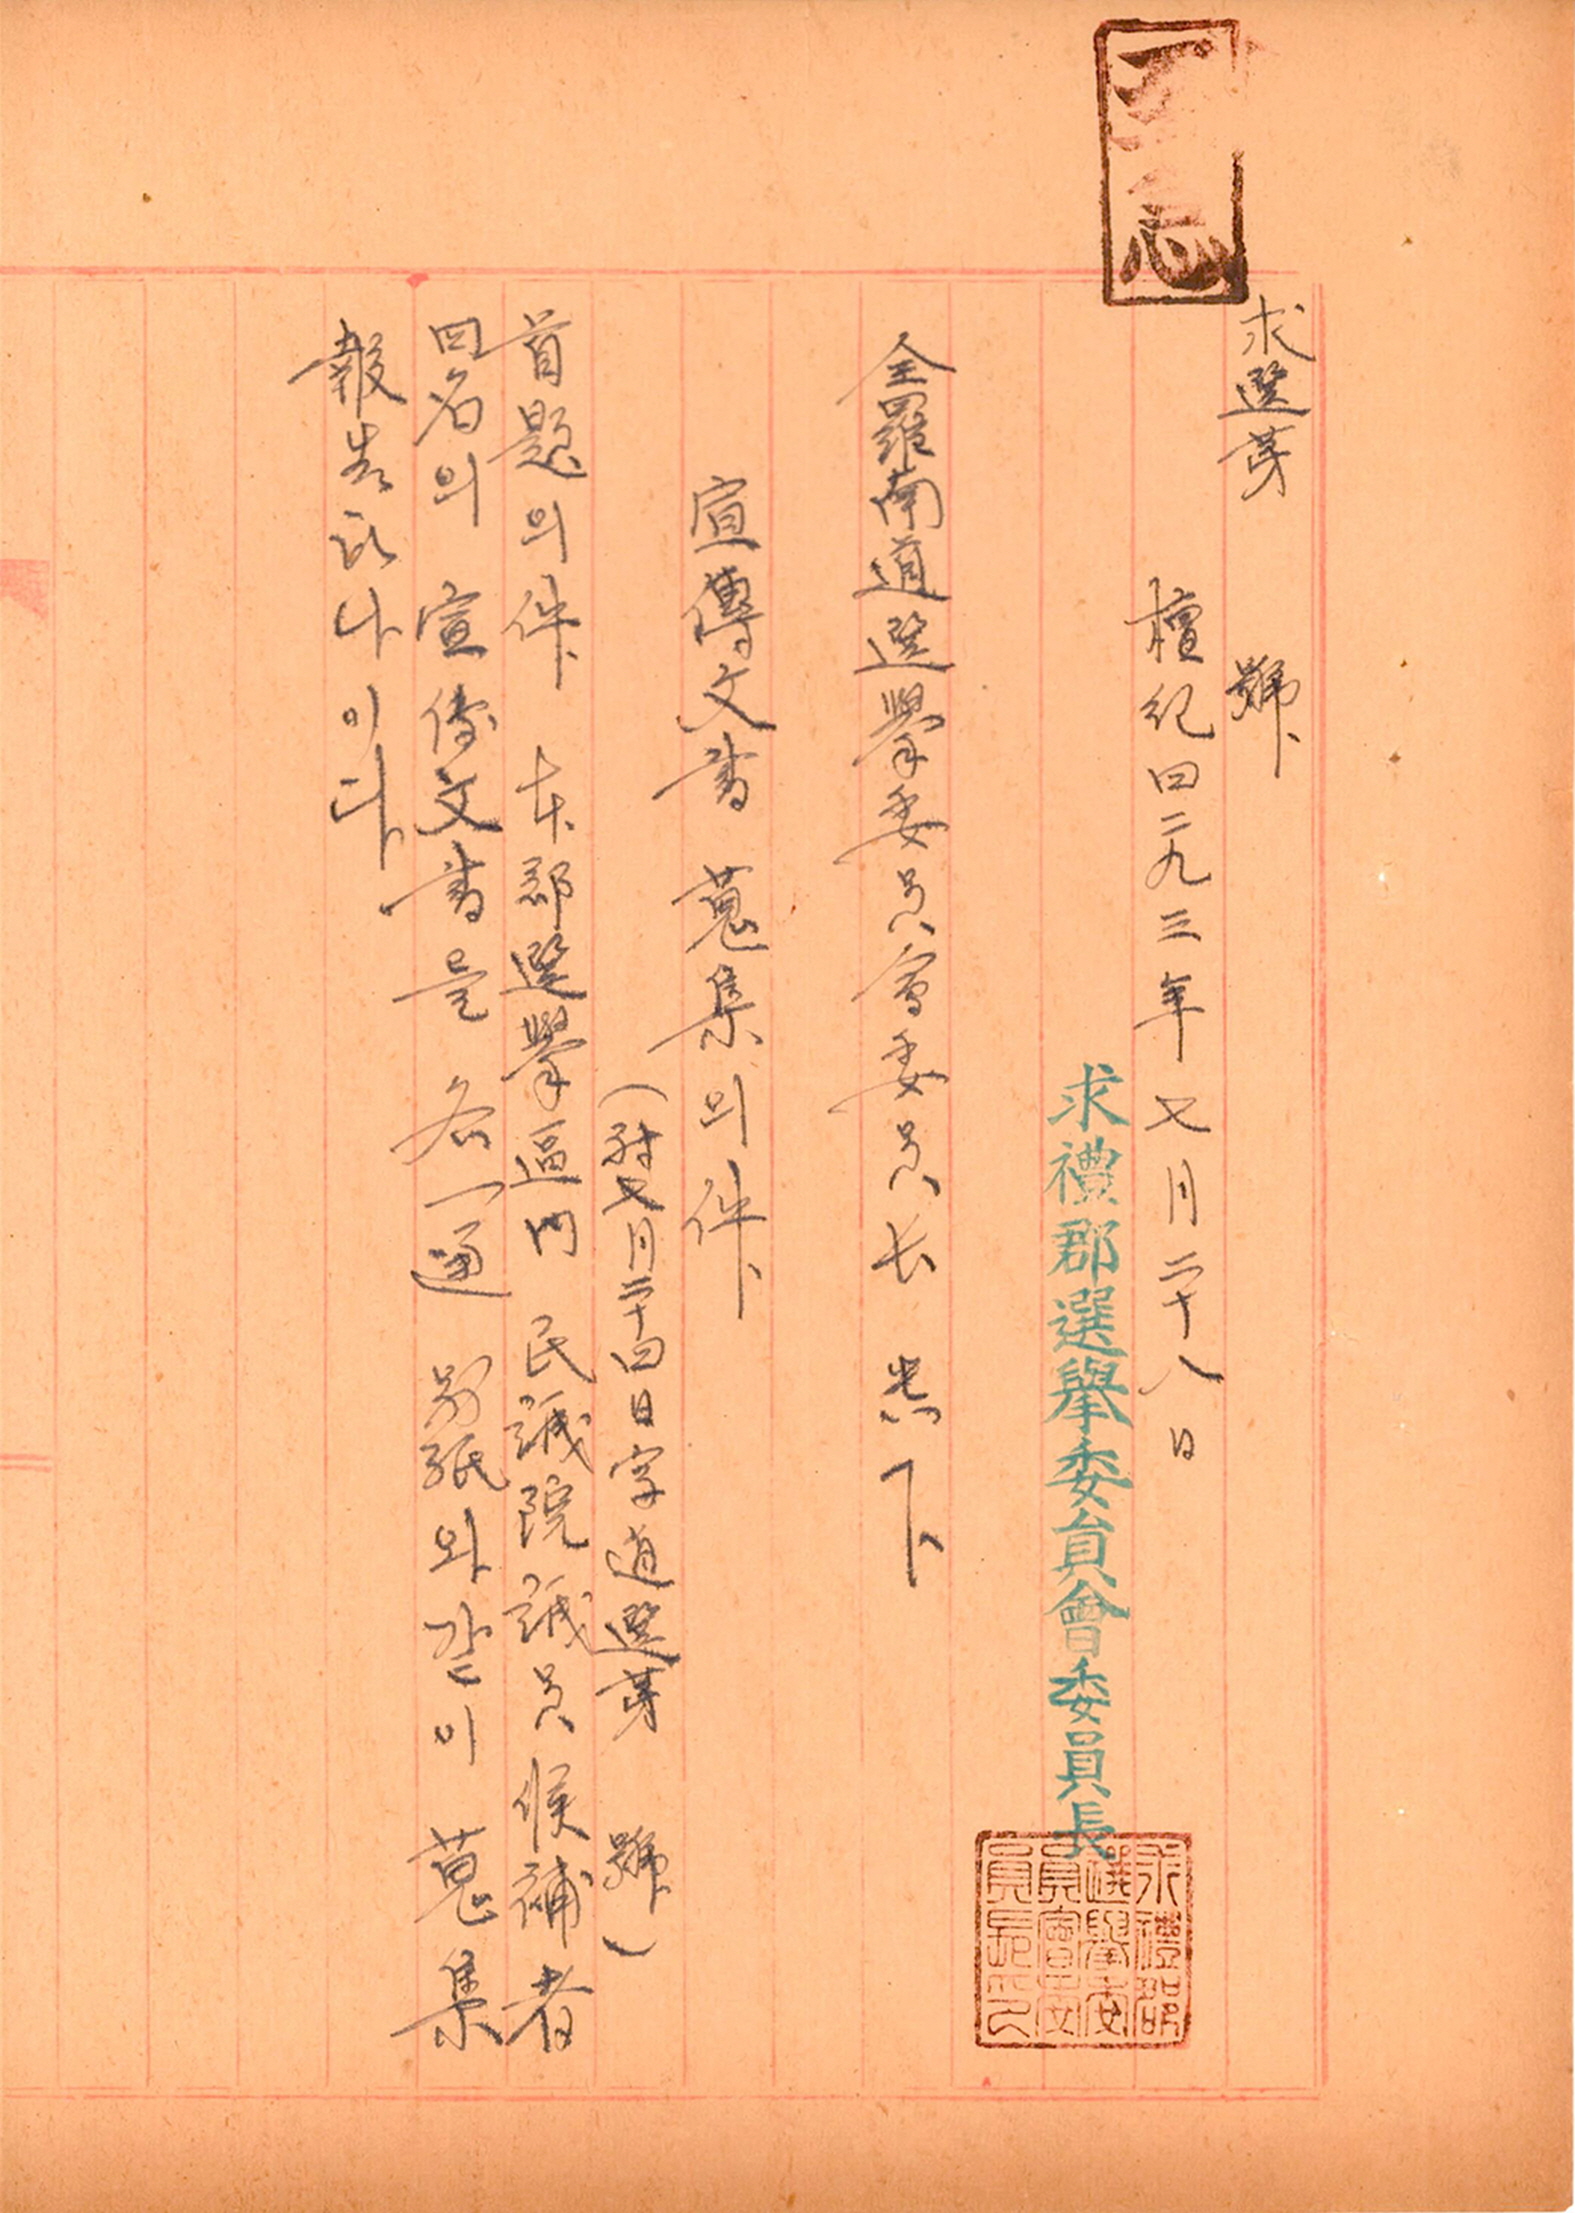 至急
求選第 號
檀紀四二九三年七月二十八日
求禮郡選擧委員會委員長
求禮郡
選擧委
員會委
員長印
全羅南道選擧委員會委員长 貴下
宣傳文書 蒐集의件
(對七月二十四日字道選第 號)
首題의件 本郡選擧區內 民議院議員候補者
四名의 宣傳文書를 各一通 別紙와같이 蒐集
報告하나이다